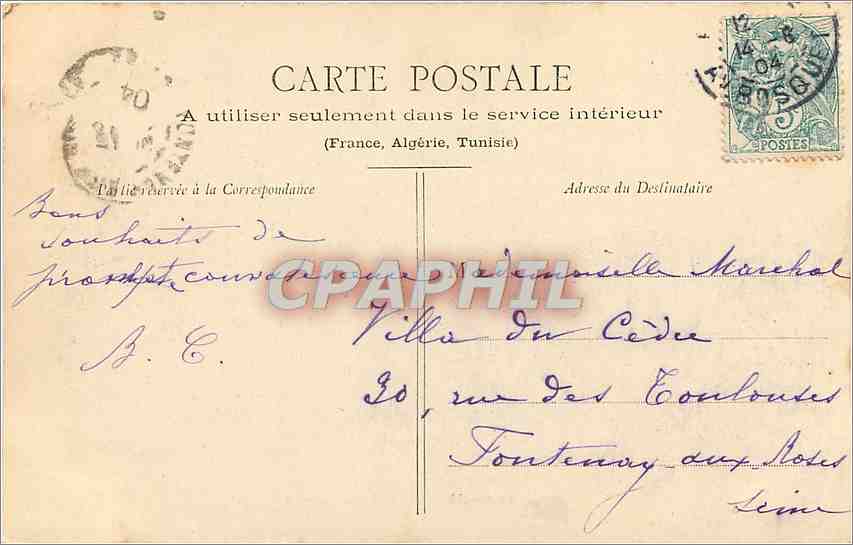 CARTE POSTALE
A utiliser seulement dans le service intérieur
(France, Algérie, Tunisie)
Partie réservée à la Correspondance
Adresse du Destinataire
Bons
souhaits de
prompte convalescence
B. C.
Mademoiselle Marechal
Villa du Cèdre
30, rue des
Fontenay aux Roses
Seine
CPAPHIL
12
14 - 8
04
5
POSTES
04